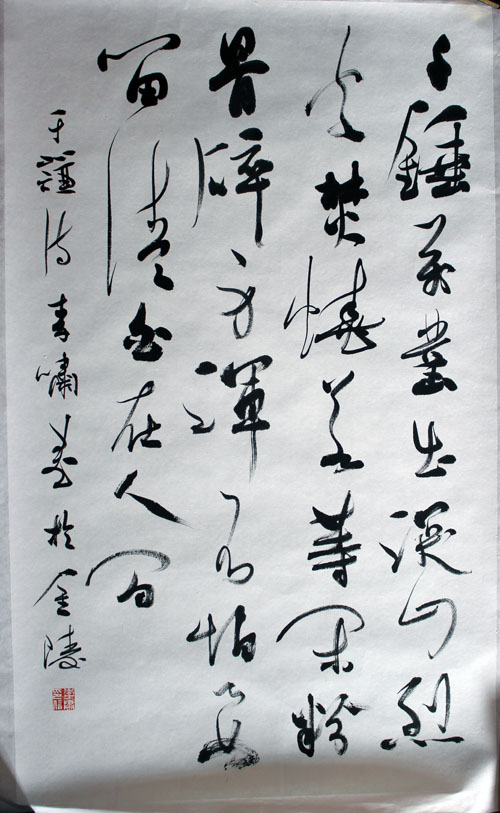 千錘萬凿出深山烈
火焚燒若等閑粉
骨碎身渾不怕要
留清白在人間
于謙詩青嘯書於金陵